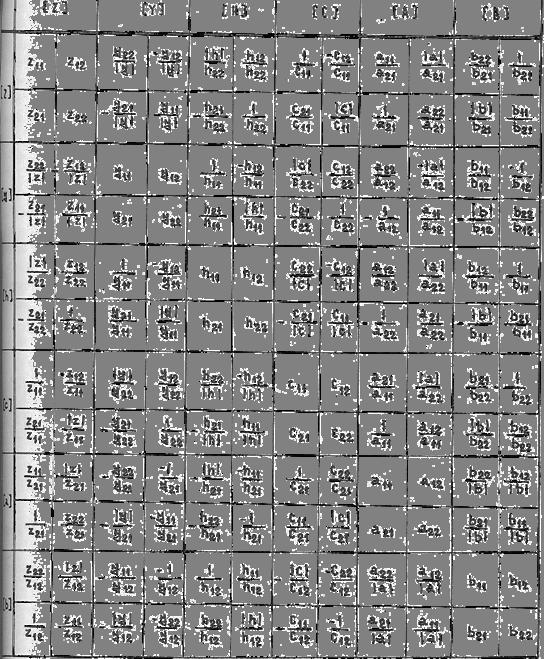 [Z] [Y] [H] [C] [A] [B]
[z] z11 z12 y22/|y| -y12/|y| |h|/h22 h12/h22 1/c11 -c12/c11 a11/a21 |a|/a21 b22/b21 1/b21
z21 z22 -y21/|y| y11/|y| -h21/h22 1/h22 c21/c11 |c|/c11 1/a21 a22/a21 |b|/b21 b11/b21
[y] z22/|z| -z12/|z| y11 y12 1/h11 -h12/h11 |c|/c22 c12/c22 a22/a12 -|a|/a12 b11/b12 -1/b12
-z21/|z| z11/|z| y21 y22 h21/h11 |h|/h11 -c21/c22 1/c22 -1/a12 a11/a12 -|b|/b12 b22/b12
[h] |z|/z22 z12/z22 1/y11 -y12/y11 h11 h12 c22/|c| -c12/|c| a12/a22 |a|/a22 b12/b11 1/b11
-z21/z22 1/z22 y21/y11 |y|/y11 h21 h22 -c21/|c| c11/|c| -1/a22 a21/a22 -|b|/b11 b21/b11
[c] 1/z11 -z12/z11 |y|/y22 y12/y22 h22/|h| -h12/|h| c11 c12 a21/a11 -|a|/a22 b21/b22 -1/b22
z21/z11 |z|/z11 -y21/y22 1/y22 -h21/|h| h11/|h| c21 c22 1/a11 a12/a11 |b|/b22 b12/b22
[A] z11/z21 |z|/z21 -y22/y21 -1/y21 -|h|/h21 -h11/h21 1/c21 c22/c21 a11 a12 b22/|b| b12/|b|
1/z21 z22/z21 -|y|/y21 -y11/y21 -h22/h21 -1/h21 c11/c21 |c|/c21 a21 a22 b21/|b| b11/|b|
[b] z22/z12 |z|/z12 -y11/y12 -1/y12 1/h12 h11/h12 -|c|/c12 -c22/c12 a22/|a| a12/|a| b11 b12
1/z12 z11/z12 -|y|/y12 -y22/y12 h22/h12 |h|/h12 -c11/c12 -1/c12 a21/|a| a11/|a| b21 b22